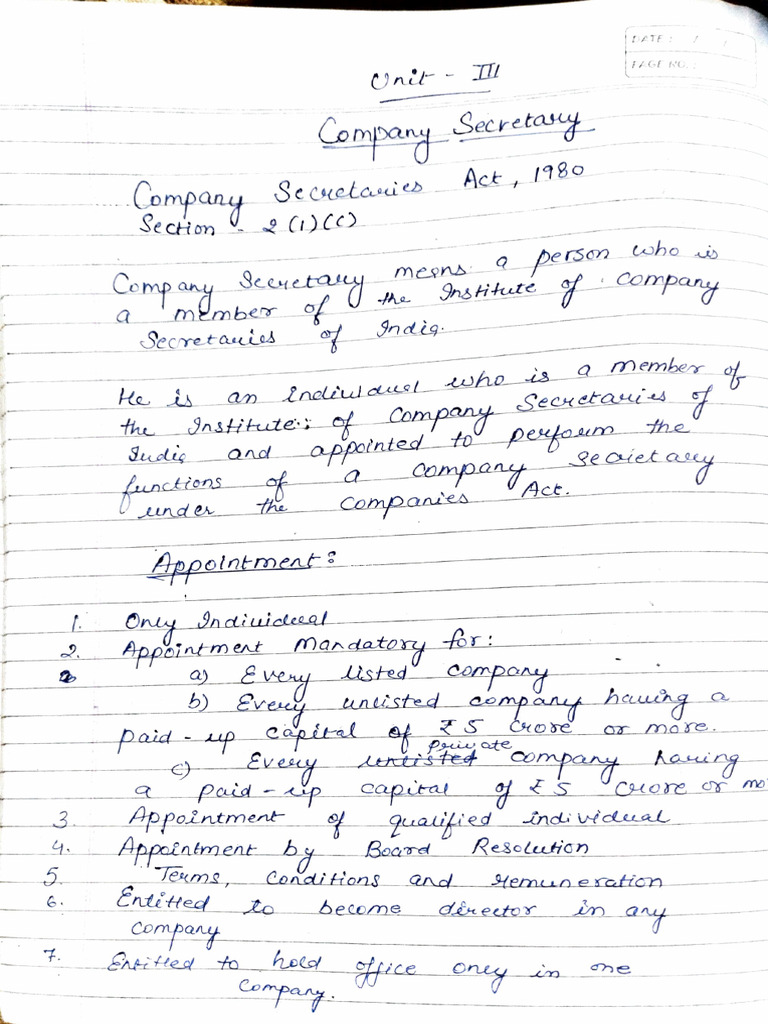 DATE: / /
PAGE NO.:
Unit - III
Company Secretary
Company Secretaries Act, 1980
Section - 2(1)(c)
Company Secretary means a person who is
a member of the Institute of Company
Secretaries of India.
He is an individual who is a member of
the Institute of Company Secretaries of
India and appointed to perform the
functions of a company secretary
under the Companies Act.
Appointment:
1. Only Individual
2. Appointment Mandatory for:
a) Every listed company
b) Every unlisted company having a
paid-up capital of ₹5 crore or more.
private
c) Every unlisted company having
a paid-up capital of ₹5 crore or mo
3. Appointment of qualified individual
4. Appointment by Board Resolution
5. Terms, conditions and remuneration
6. Entitled to become director in any
company
7. Entitled to hold office only in one
company.